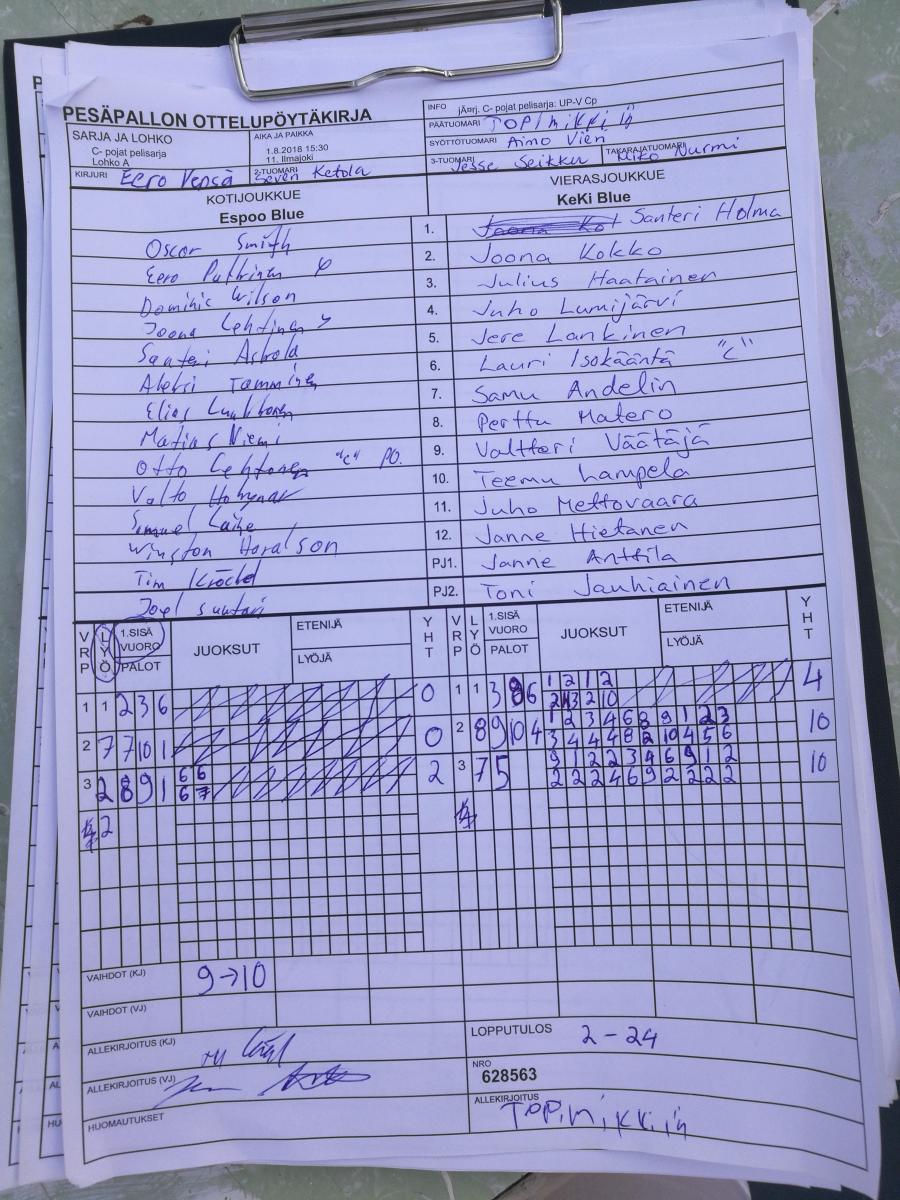 PESÄPALLON OTTELUPÖYTÄKIRJA
SARJA JA LOHKO
C- pojat pelisarja
Lohko A
AIKA JA PAIKKA
1.8.2018 15:30
11. Ilmajoki
INFO jÄ¤rj. C- pojat pelisarja: UP-V Cp
PÄÄTUOMARI
SYÖTTÖTUOMARI Aimo Vien
KIRJURI Eero Vepsä
2-TUOMARI Seven Ketola
3-TUOMARI Jesse Seikku
TAKARAJATUOMARI Niko Nurmi
KOTIJOUKKUE
Espoo Blue
VIERASJOUKKUE
KeKi Blue
Oscar Smith
1. Santeri Holma
Eero
2. Joona Kokko
Dominic Wilson
3. Julius Haatainen
Joona Lehtinen
4. Juho Lumijärvi
Santeri Asbola
5. Jere Lankinen
Aleksi Tamminen
6. Lauri Isokääntä "C"
Elias Luukkonen
7. Samu Andelin
Matias Niemi
8. Perttu Matero
Otto Lehtonen "C" PO.
9. Valtteri Väätäjä
Valto
10. Teemu Lampela
Samuel
11. Juho Mettovaara
Winston Haralson
12. Janne Hietanen
Tim
PJ1. Janne Anttila
Joel Suutari
PJ2. Toni Jauhiainen
VRP LYÖ 1.SISÄ VUORO PALOT JUOKSUT ETENIJÄ LYÖJÄ YHT
VRP LYÖ 1.SISÄ VUORO PALOT JUOKSUT ETENIJÄ LYÖJÄ YHT
1 1 2 3 6 0
1 1 3 6 1 2 1 2 4
2 3 2 10
2 7 7 10 1 0
2 8 9 10 4 1 2 3 4 6 8 9 1 2 3 10
3 4 4 4 8 2 10 4 5 6
3 2 8 9 1 6 6 2
6 7
3 7 5 9 1 2 2 3 4 6 9 1 2 10
2 2 2 4 6 9 2 2 2 2
4 2
4
VAIHDOT (KJ) 9→10
VAIHDOT (VJ)
ALLEKIRJOITUS (KJ)
LOPPUTULOS 2-24
ALLEKIRJOITUS (VJ)
NRO
628563
HUOMAUTUKSET
ALLEKIRJOITUS